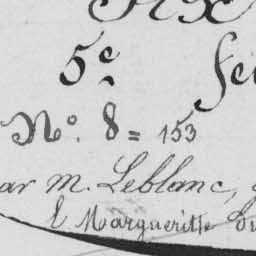 5e. fe
No. 8 = 153
ar M. Leblanc,
Margueritte Du